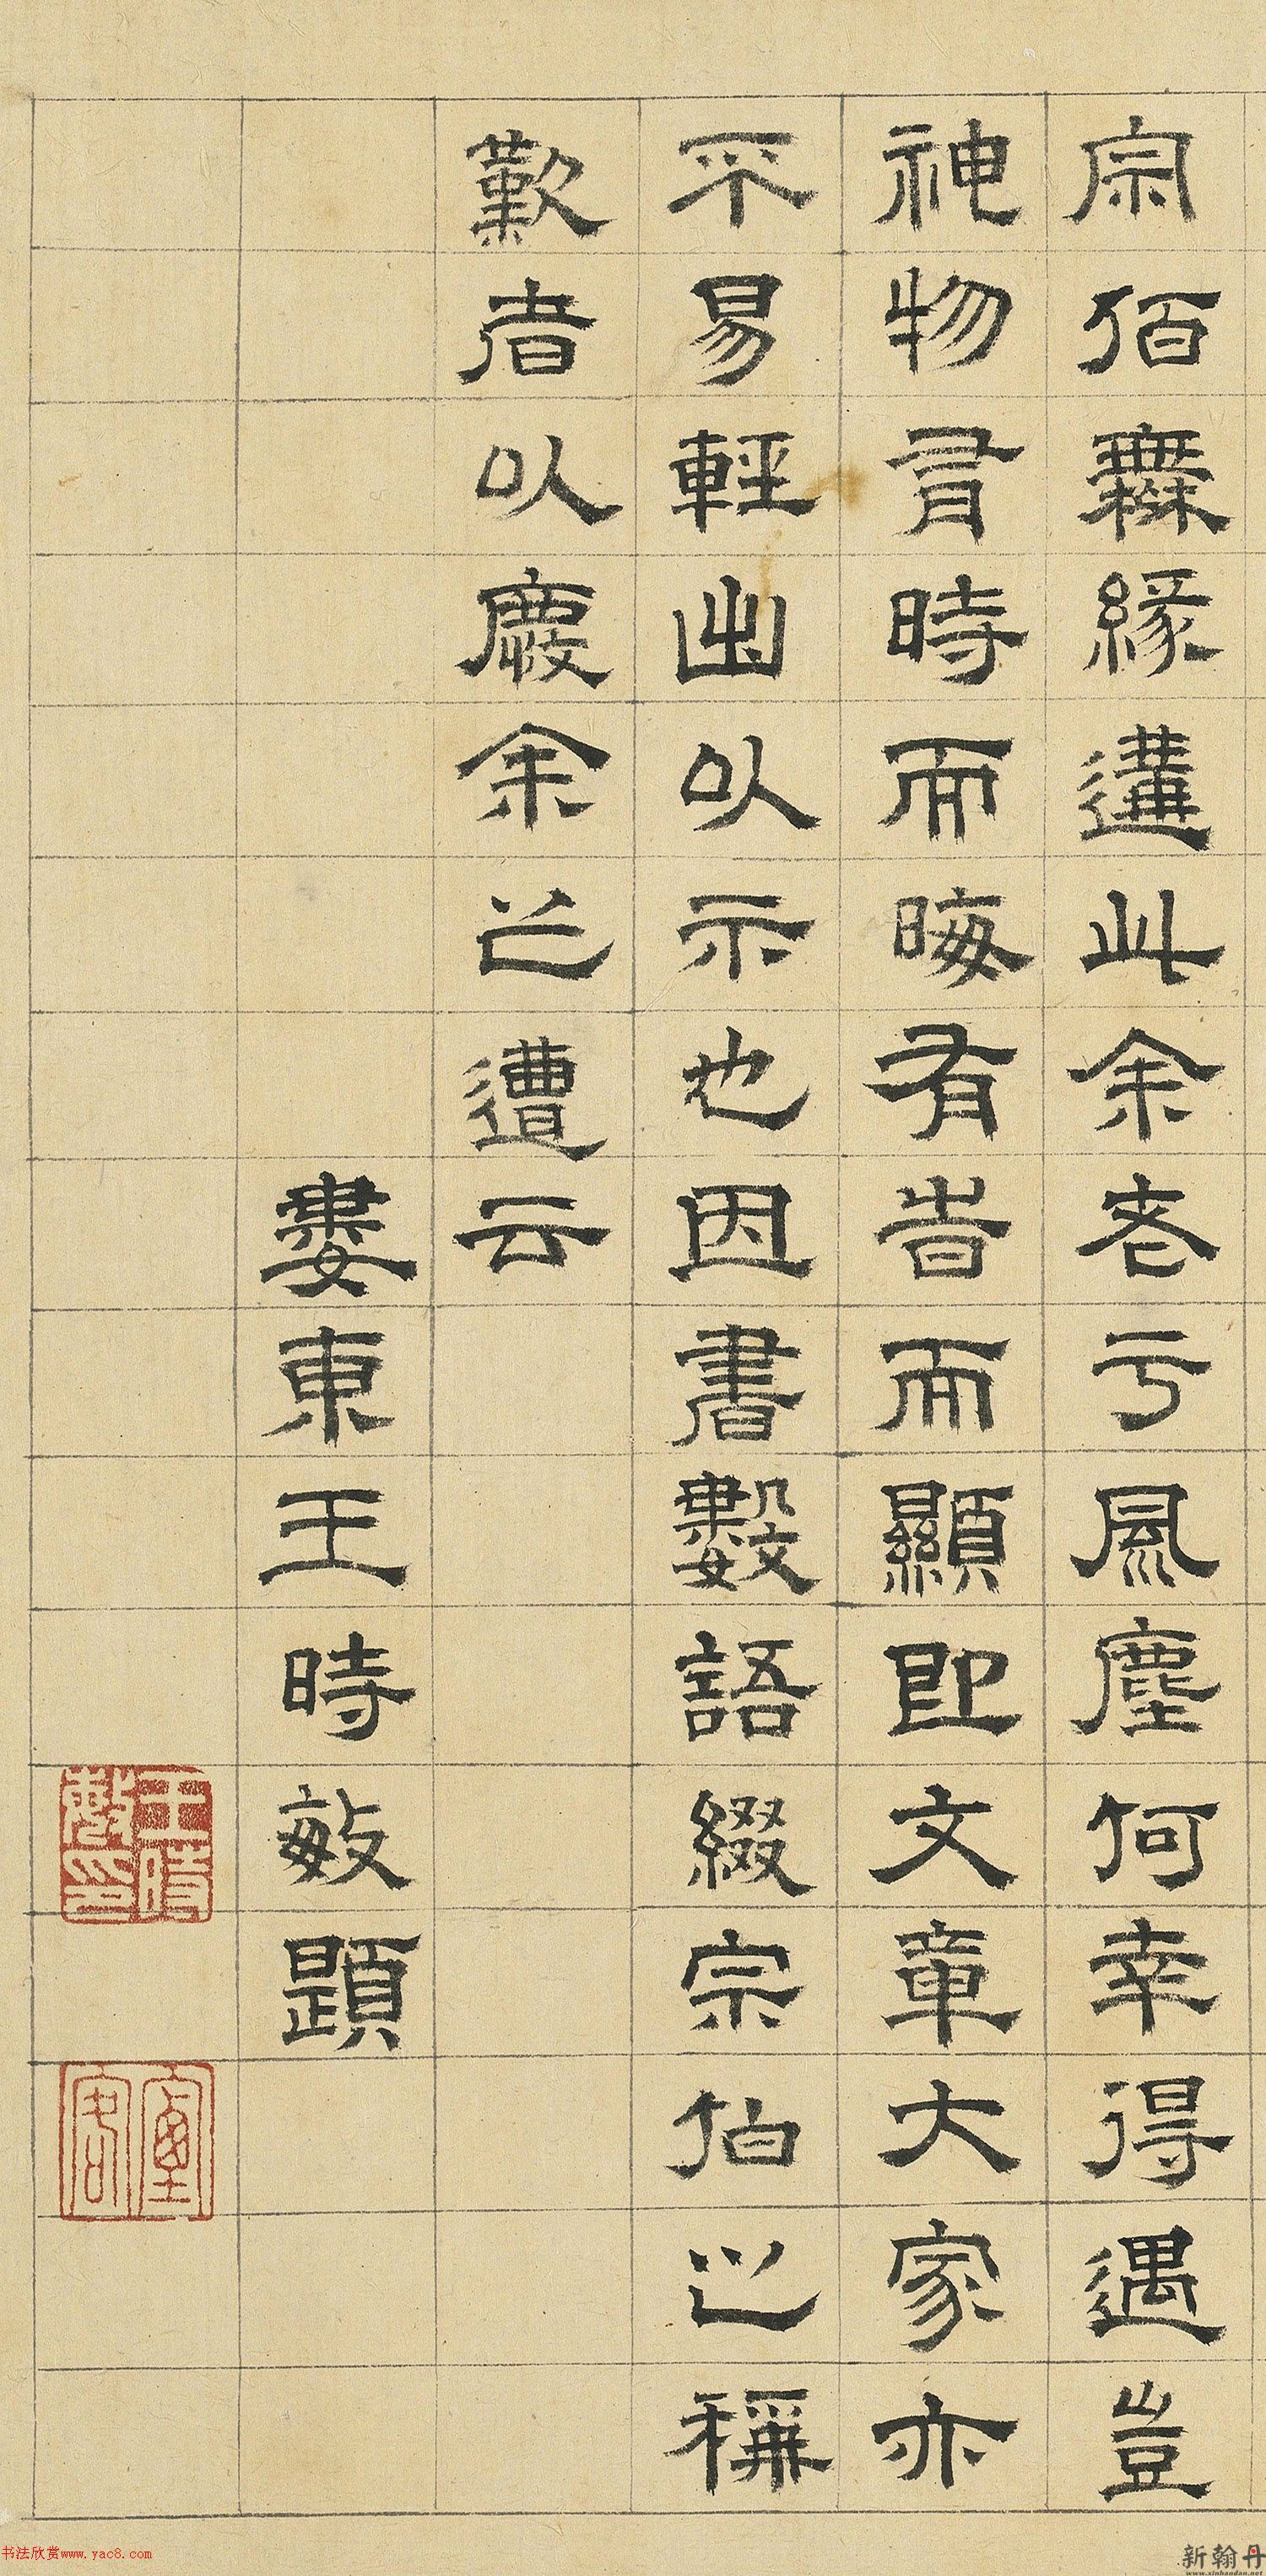 宗佰無緣遘此余老亏風塵何幸得遇豈
神物有時而晦有旹而顯即文章大家亦
不易輕出以示也因書數語綴宗伯之稱
歎者以慶余之遭云
婁東王時敏題
王時敏印
煙客
书法欣赏www.yac8.com
新翰丹
www.xinhandan.net